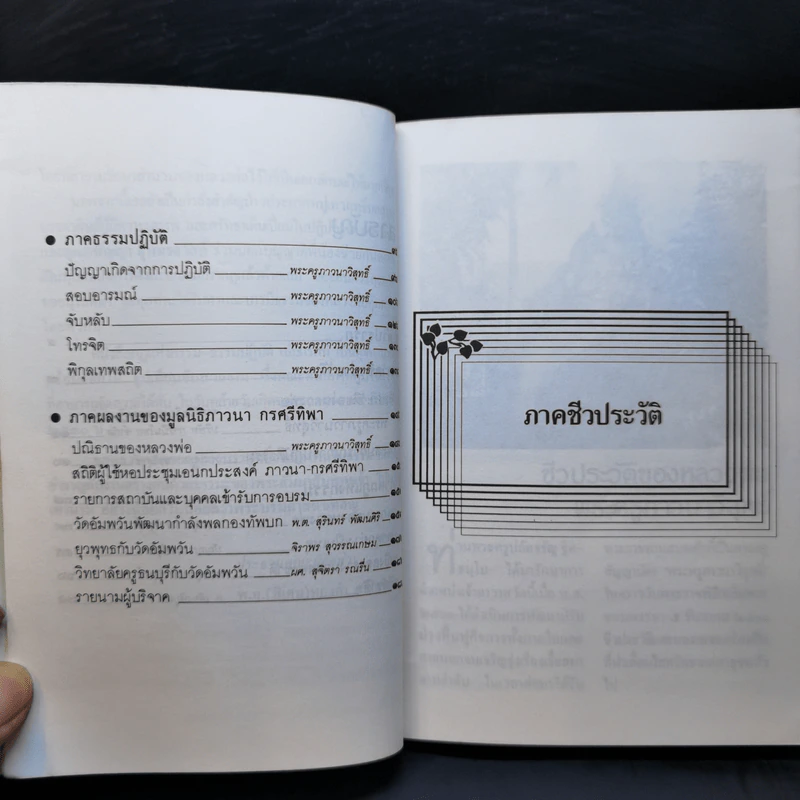 ภาคธรรมปฏิบัติ
ปัญญาเกิดจากการปฏิบัติ พระครูภาวนาวิสุทธิ์
สอบอารมณ์ พระครูภาวนาวิสุทธิ์
จับหลับ พระครูภาวนาวิสุทธิ์
โทรจิต พระครูภาวนาวิสุทธิ์
พิกุลเทพสถิต พระครูภาวนาวิสุทธิ์
ภาคผลงานของมูลนิธิภาวนา กรศรีทิพา
ปณิธานของหลวงพ่อ พระครูภาวนาวิสุทธิ์
สถิติผู้ใช้หอประชุมเอนกประสงค์ ภาวนา-กรศรีทิพา
รายการสถาบันและบุคคลเข้ารับการอบรม
วัดอัมพวันพัฒนากำลังพลกองทัพบก พ.ต. สุรินทร์ พัฒนศิริ
ยุวพุทธกับวัดอัมพวัน จิราพร สุวรรณเกษม
วิทยาลัยครูธนบุรีกับวัดอัมพวัน ผศ. สุจิตรา รณรื่น
รายนามผู้บริจาค
ภาคชีวประวัติ